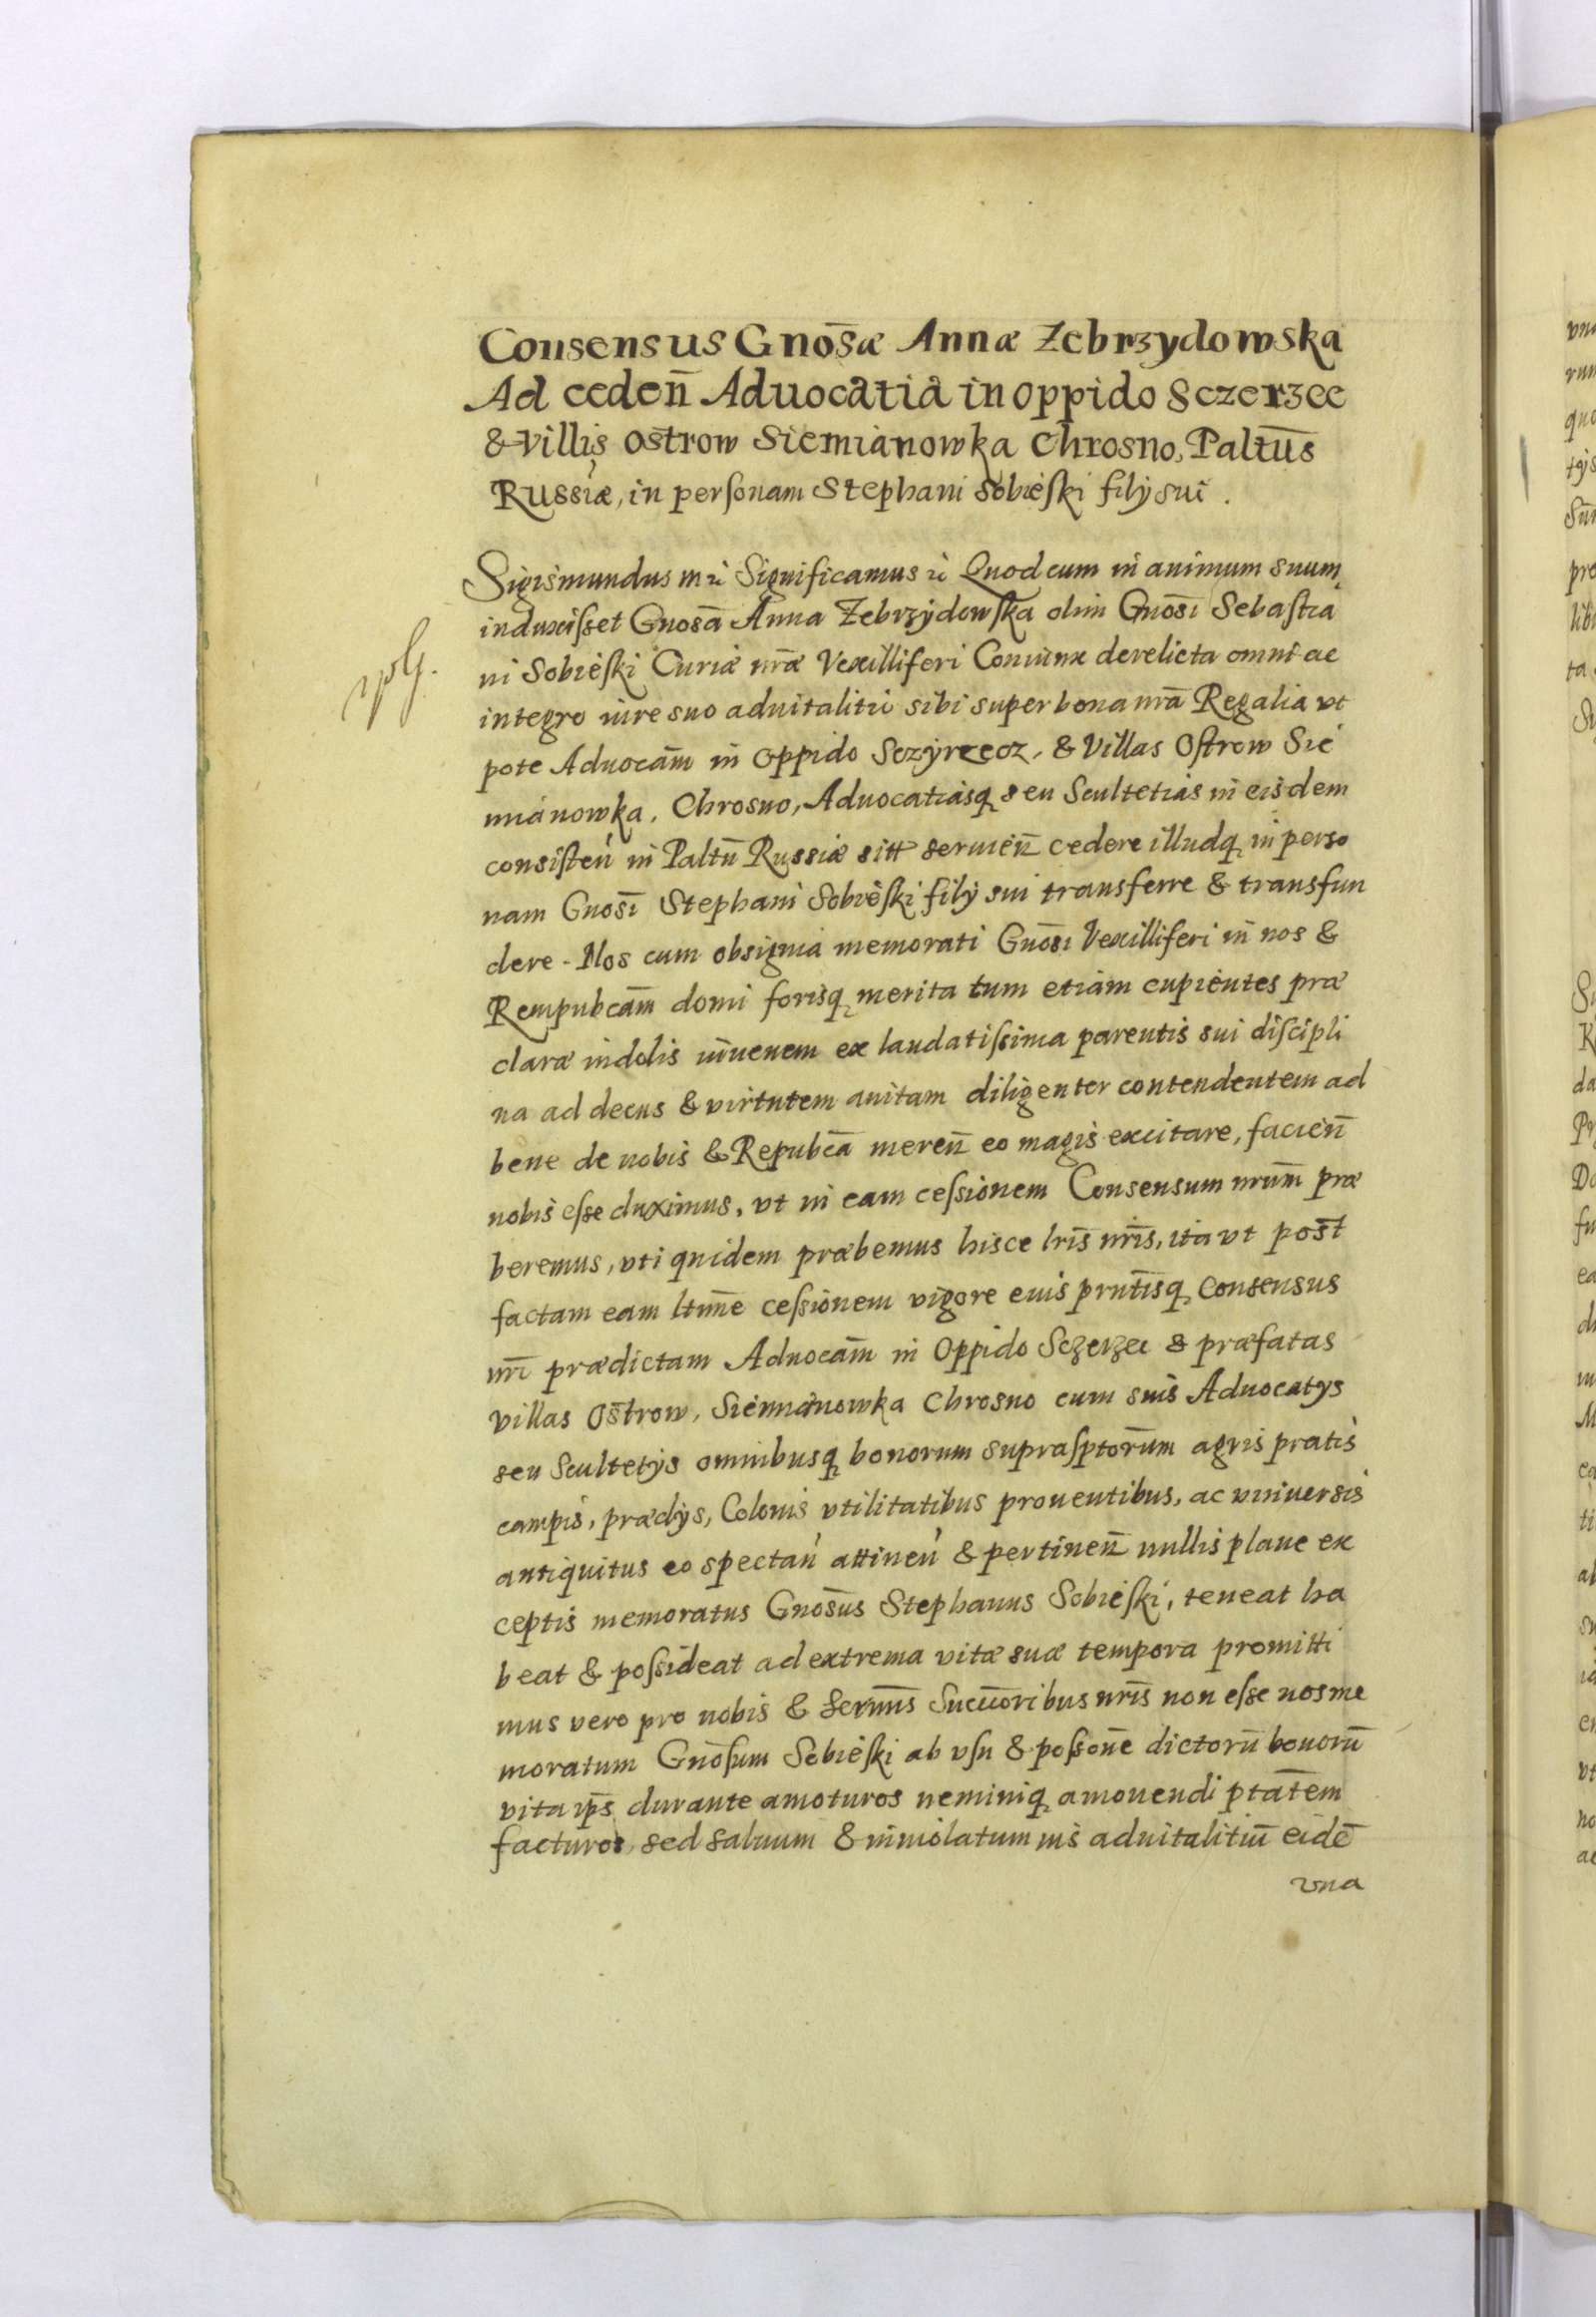 Consensus Gnōsæ Annæ Zebrzydowska
Ad ceden̄ Aduocatia in oppido Sczerzec
& villis Ostrow Siemianowka Chrosno, Paltūs
Russiæ, in personam Stephani Sobieski filÿ sui.
Sigismundus
Significamus
Quod cum in animum suum
induxisset Gnosā Anna Zebrzydowska olim Gnōsi Sebastia
ni Sobieski Curiæ nrǣ Vexilliferi Coniunx derelicta omni ac
integro iure suo aduitalitio sibi super bona nrā Regalia vt
pote Aduocām in Oppido Sczyrzecz, & Villas Ostrow Sie
mianowka, Chrosno, Aduocatiasq seu Scultetias in eisdem
consisten in Paltū Russiæ sitt seruien̄ cedere illudq in perso
nam Gnosī Stephani Sobieski filÿ sui transferre & transfun
dere. Nos cum obsignia memorati Gnōsi Vexilliferi in nos &
Rempubcām domi forisq merita tum etiam cupientes præ
claræ indolis iuuenem ex laudatissima parentis sui discipli
na ad decus & virtutem auitam diligenter contendentem ad
bene de nobis & Repubcā meren̄ eo magis excitare, facien̄
nobis esse duximus, vt in eam cessionem Consensum nrūm præ
beremus, vti quidem præbemus hisce lrīs nrīs, ita vt post
factam eam ltīme cessionem vigore eius prntīsq Consensus
nrī prædictam Aduocām in Oppido Sczerzec & præfatas
villas Ostrow, Siemianowka Chrosno cum suis Aduocatÿs
seu Scultetÿs omnibusq bonorum suprasptorūm agris pratis
campis, prædÿs, Colonis vtilitatibus prouentibus, ac vniuersis
antiquitus eo spectan attinen & pertinen̄ nullis plane ex
ceptis memoratus Gnosūs Stephanus Sobieski, teneat ha
beat & possideat ad extrema vitæ suæ tempora promitti
mus vero pro nobis & Sermīs Succōribus nrīs non esse nos me
moratum Gnōsum Sobieski ab vsu & possonē dictorū bonorū
vita ipś durante amoturos neminiq amouendi ptatēm
facturos, sed saluum & inuiolatum ius aduitalitiū eidē
vna